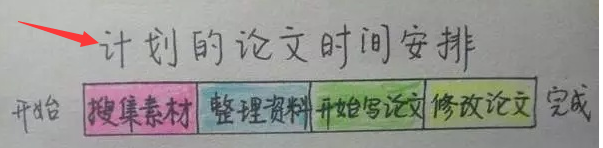 计划的论文时间安排
开始 搜集素材 整理资料 开始写论文 修改论文 完成